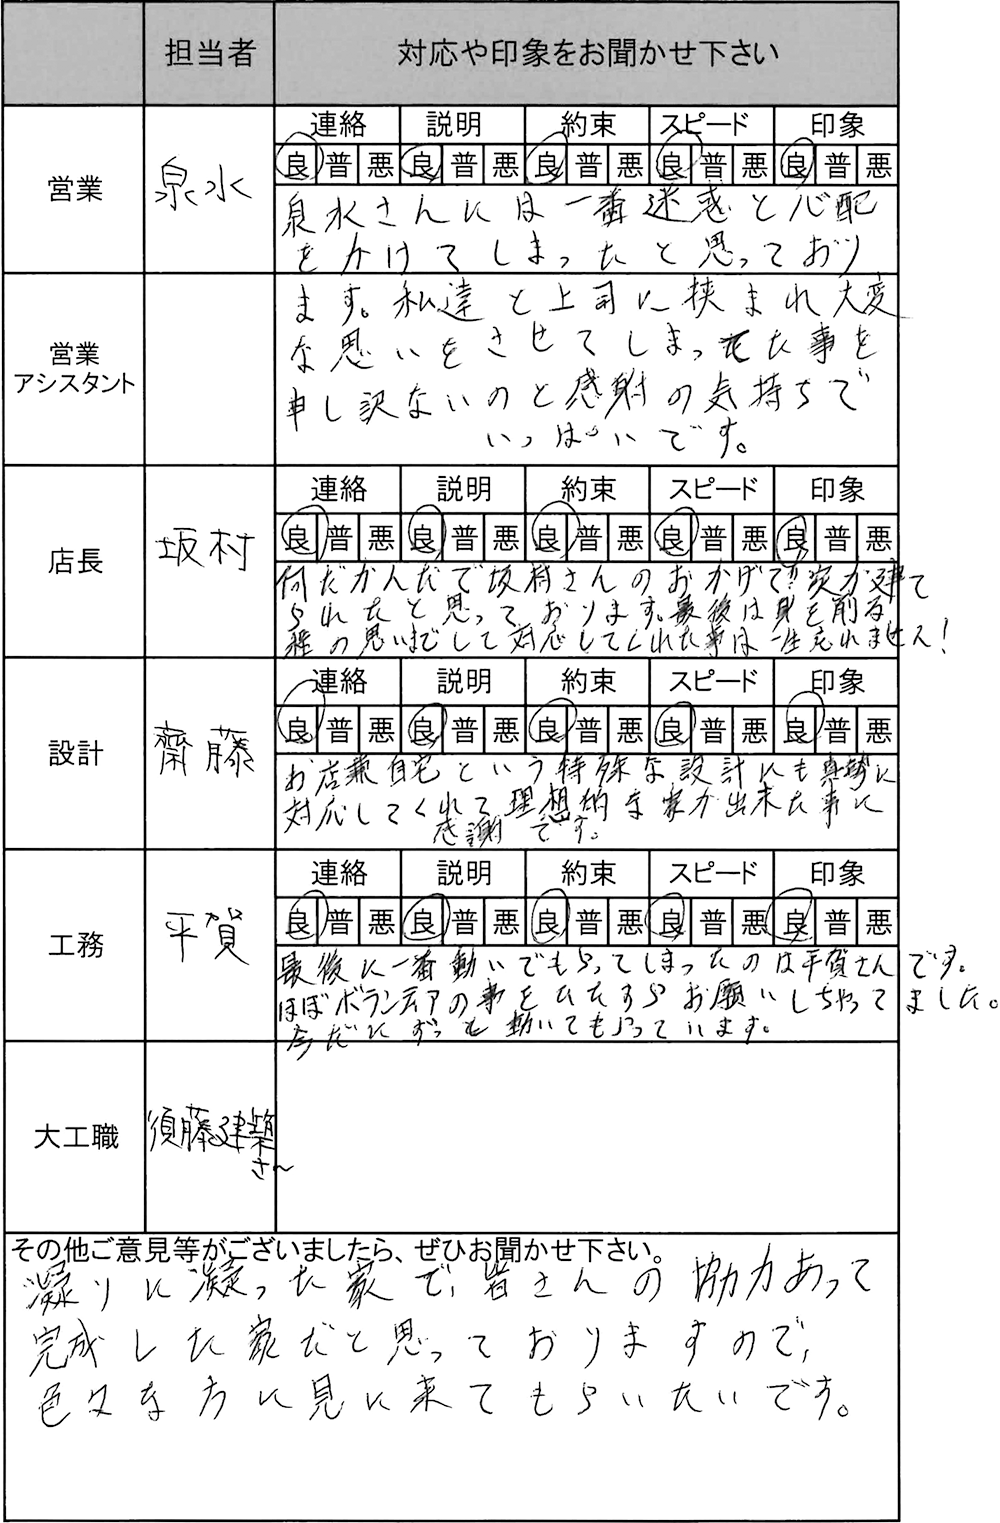 担当者 対応や印象をお聞かせ下さい
営業 泉水
連絡 説明 約束 スピード 印象
良 普 悪 良 普 悪 良 普 悪 良 普 悪 良 普 悪
泉水さんには一番迷惑と心配
をかけてしまったと思っており
営業
アシスタント
ます。私達と上司に挟まれ大変
な思いをさせてしまった事を
申し訳ないのと感謝の気持ちで
いっぱいです。
店長 坂村
連絡 説明 約束 スピード 印象
良 普 悪 良 普 悪 良 普 悪 良 普 悪 良 普 悪
何だかんだで坂村さんのおかげで家が建て
られたと思っております。最後は身を削る
程の思いまでして対応してくれた事は一生忘れません!
設計 齋藤
連絡 説明 約束 スピード 印象
良 普 悪 良 普 悪 良 普 悪 良 普 悪 良 普 悪
お店兼自宅という特殊な設計にも真摯に
対応してくれて理想的な家が出来た事に
感謝です。
工務 平賀
連絡 説明 約束 スピード 印象
良 普 悪 良 普 悪 良 普 悪 良 普 悪 良 普 悪
最後に一番動いてもらってしまったのは平賀さんです。
ほぼボランティアの事をひたすらお願いしちゃってました。
今だにずっと動いてもらっています。
大工職 須藤建築
さん
その他ご意見等がございましたら、ぜひお聞かせ下さい。
凝りに凝った家で、皆さんの協力あって
完成した家だと思っておりますので、
色々な方に見に来てもらいたいです。